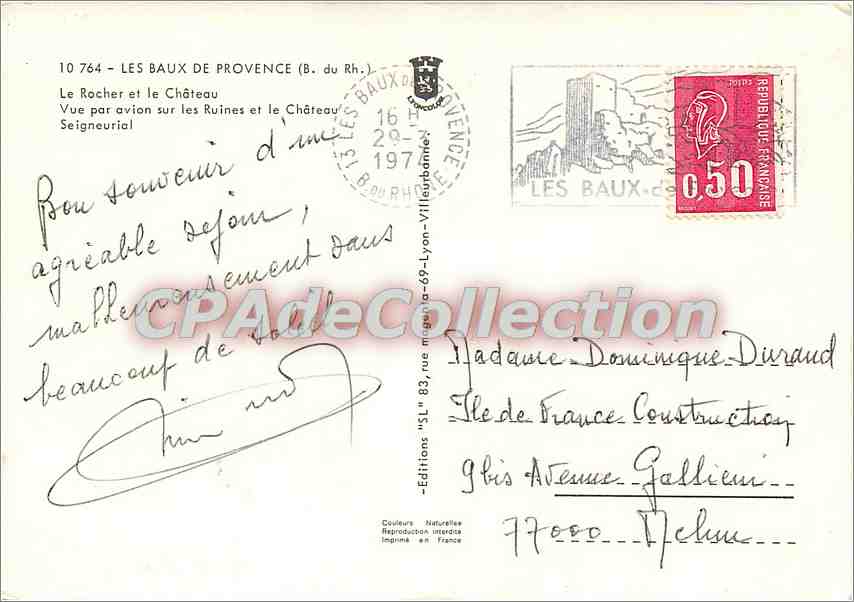 10 764 - LES BAUX DE PROVENCE (B. du Rh.)
Le Rocher et le Château
Vue par avion sur les Ruines et le Château
Seigneurial
LYONCOLOR
13 LES BAUX DE PROVENCE
16 H
29-
1974
B. DU RHONE
LES BAUX-d
POSTES
REPUBLIQUE FRANÇAISE
0,50
Bon souvenir d'un
agréable séjour,
malheureusement sans
beaucoup de soleil
CPAdeCollection.com
-Editions "SL" 83, rue magenta-69-Lyon-Villeurbanne-
Madame Dominique Durand
Ile de France Construction
9bis Avenue Gallieni
77000 Melun
Couleurs Naturelles
Reproduction interdite
Imprimé en France